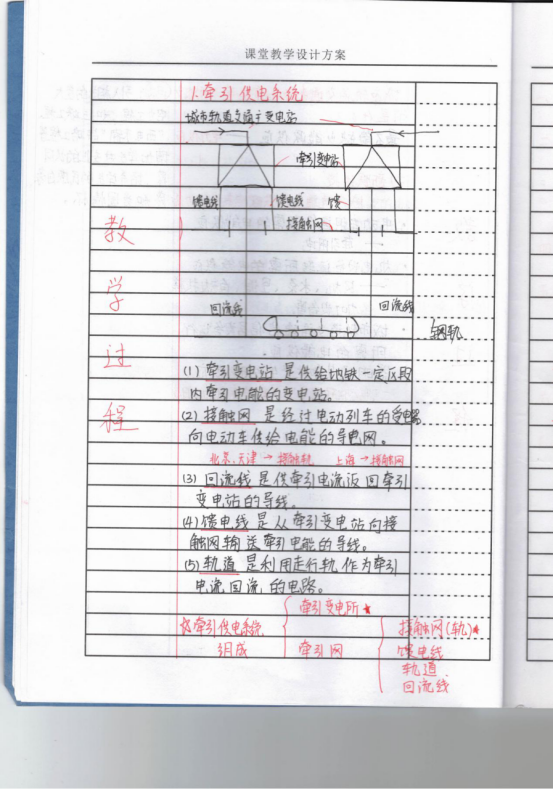 课堂教学设计方案
1.牵引供电系统
城市轨道交通主变电站
牵引变电站
馈电线 馈电线 馈
接触网
教学过程
回流线 回流线
钢轨
(1) 牵引变电站 是供给地铁一定区段
内牵引电能的变电站。
(2) 接触网 是经过电动列车的受电器
向电动车供给电能的导电网。
北京、天津→接触轨 上海→接触网
(3) 回流线 是供牵引电流返回牵引
变电站的导线。
(4) 馈电线 是从牵引变电站向接
触网输送牵引电能的导线。
(5) 轨道 是利用走行轨作为牵引
电流回流的电路。
牵引变电所★
牵引供电系统 接触网(轨)★
组成 牵引网 馈电线
轨道
回流线